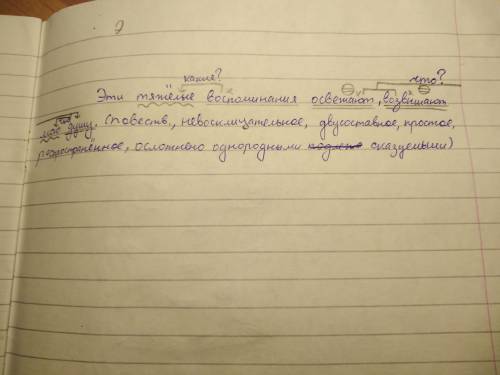 2
какие? что?
Эти тяжёлые воспоминания освещают, возвышают
мою душу. (повеств., невосклицательное, двусоставное, простое,
распространённое, осложнено однородными сказуемыми)